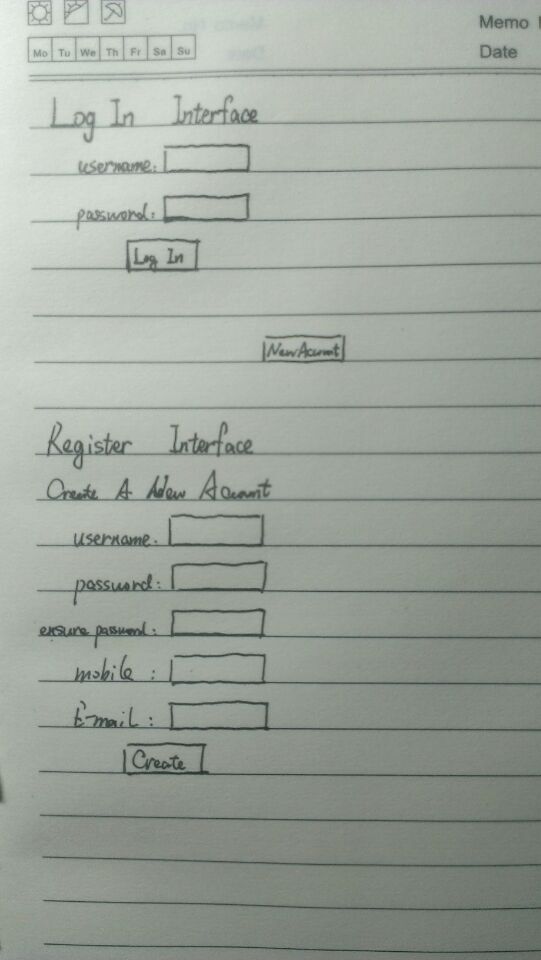 Memo
Mo Tu We Th Fr Sa Su
Date
Log In Interface
username:
password:
Log In
New Acount
Register Interface
Create A New Acount
username.
password:
ensure password:
mobile :
E-mail :
Create